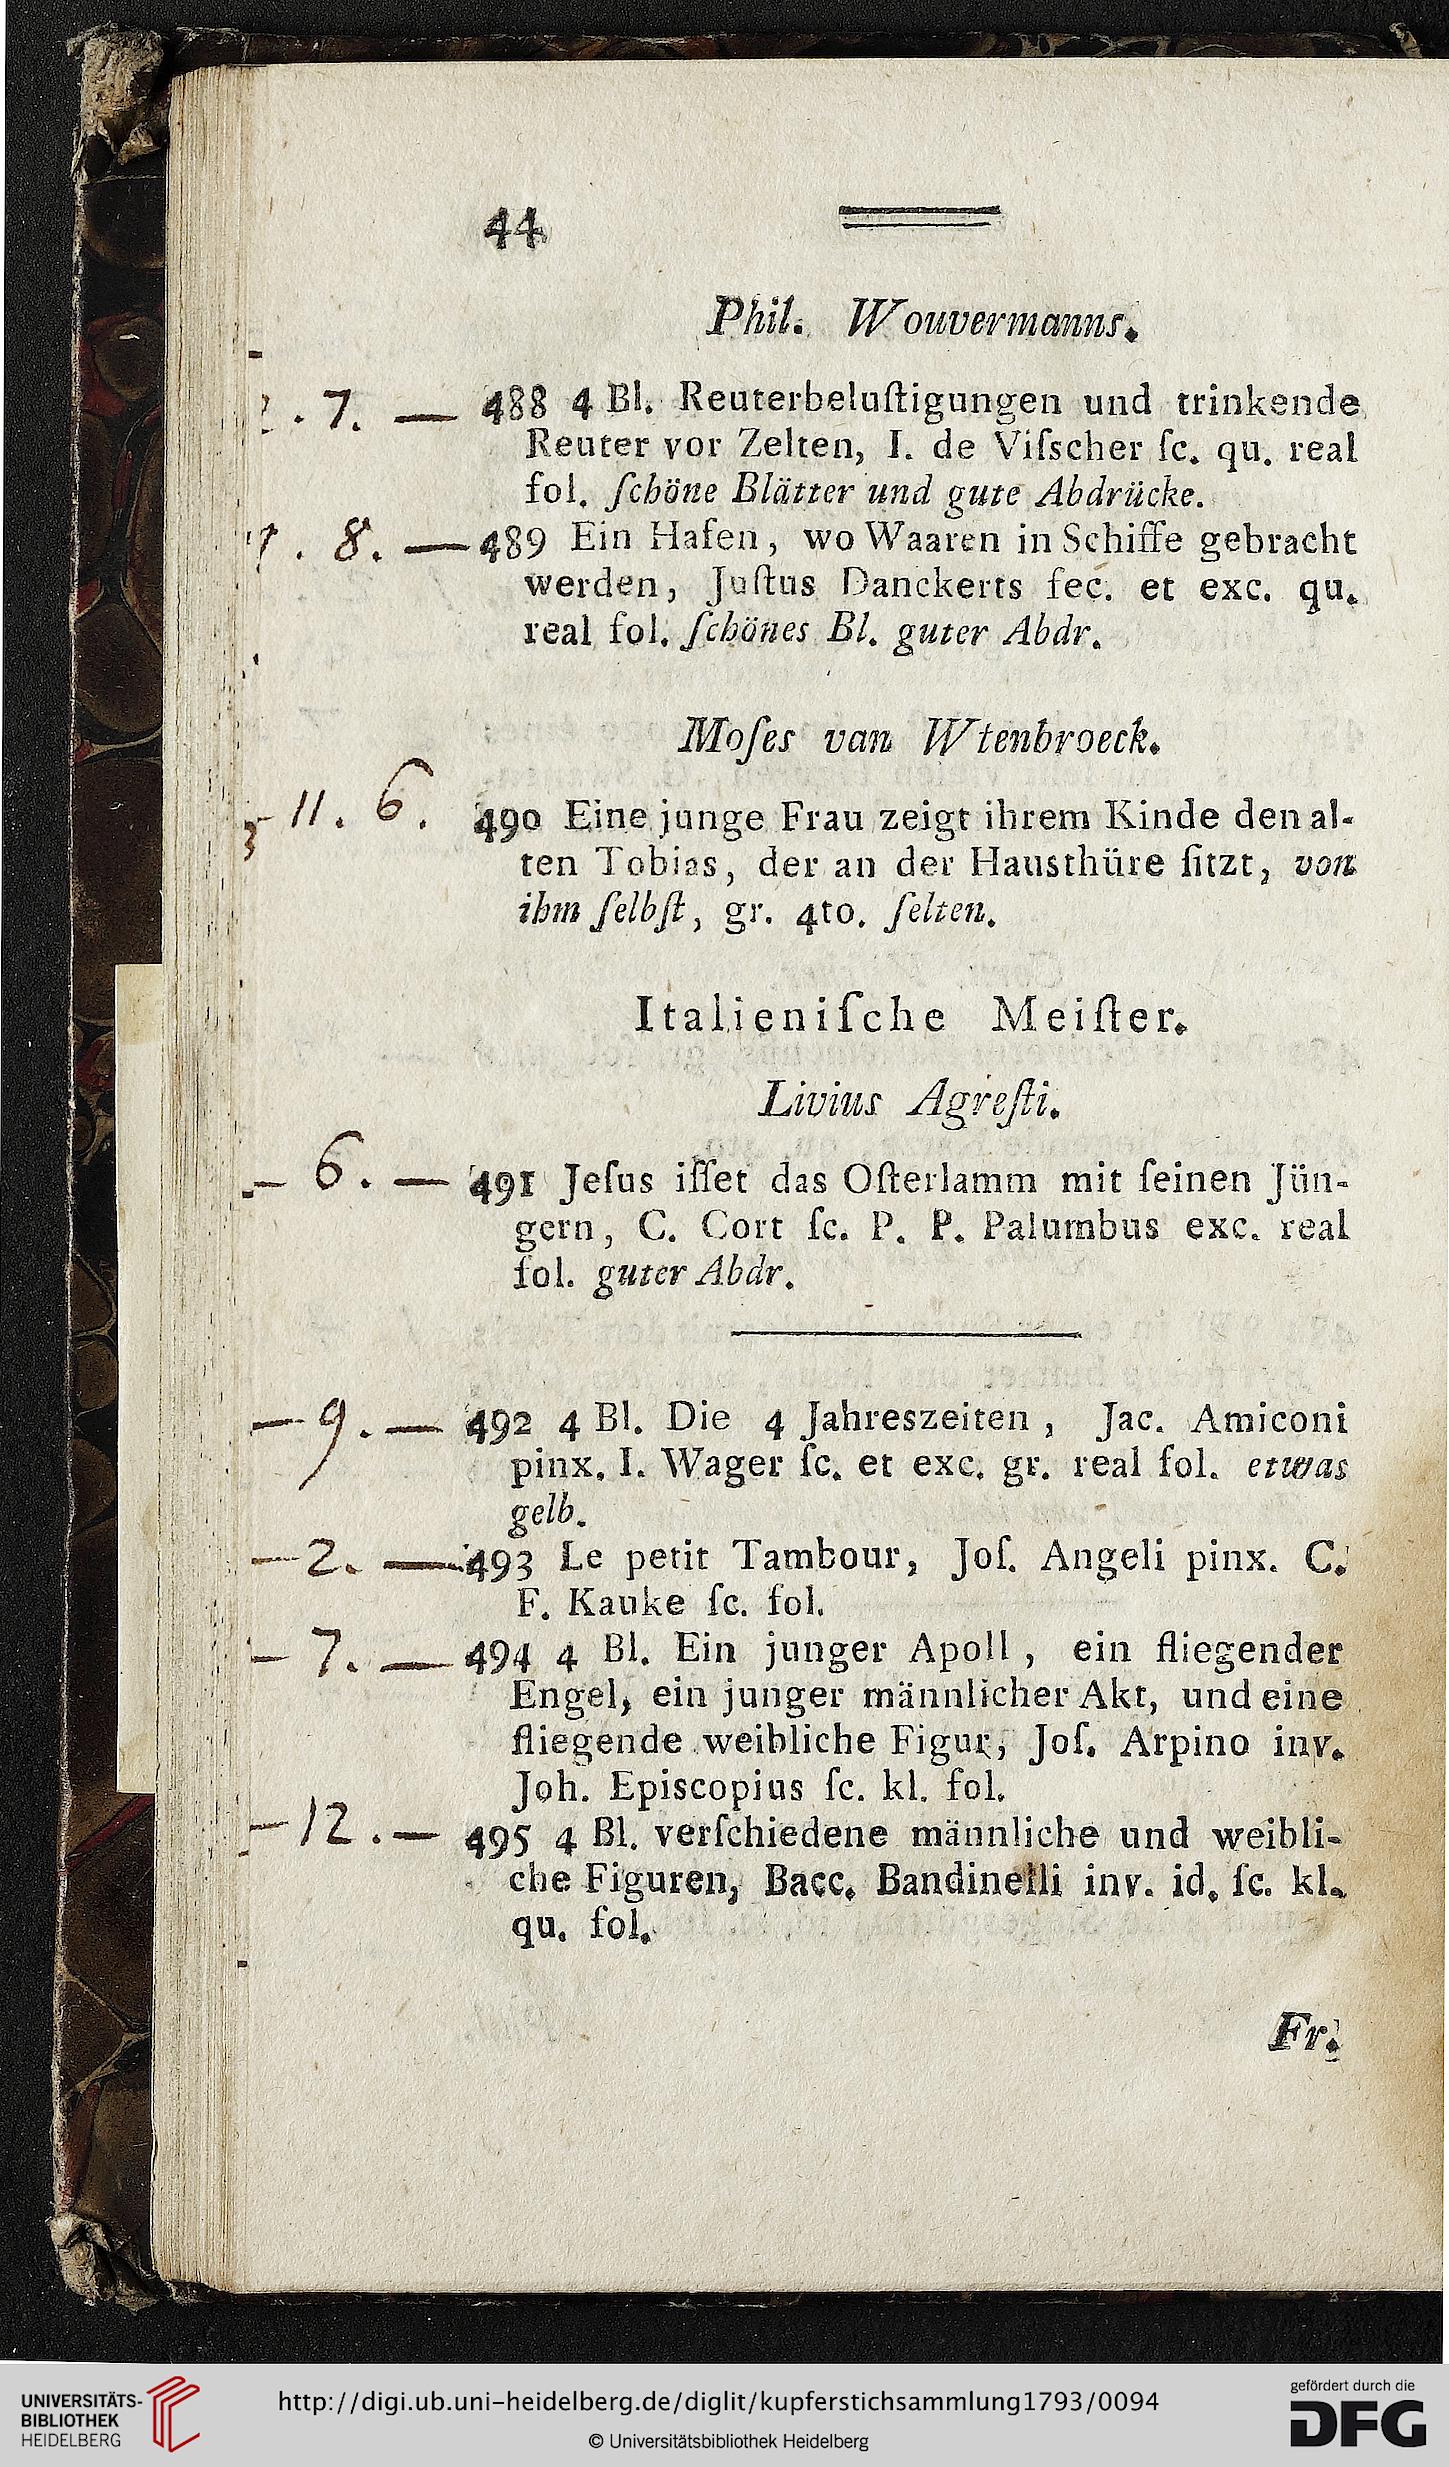 44
Phil. Wouvermanns.
. 7. — 488 4 Bl. Reuterbeluſtigungen und trinkende
Reuter vor Zelten, I. de Viſscher ſc. qu. real
fol. ſchöne Blätter und gute Abdrücke.
. 8. — 489 Ein Hafen, wo Waaren in Schiffe gebracht
werden, Juſtus Danckerts fec. et exc. qu.
real fol. ſchönes Bl. guter Abdr.
Moſes van Wtenbroeck.
11. 6. 490 Eine junge Frau zeigt ihrem Kinde den al-
ten Tobias, der an der Hausthüre ſitzt, von
ihm ſelbſt, gr. 4to. ſelten.
Italieniſche Meiſter.
Livius Agreſti.
— 6. — 491 Jeſus iſſet das Oſterlamm mit ſeinen Jün-
gern, C. Cort ſc. P. P. Palumbus exc. real
fol. guter Abdr.
— 9. — 492 4 Bl. Die 4 Jahreszeiten, Jac. Amiconi
pinx. I. Wager ſc. et exc. gr. real fol. etwas
gelb.
— 2. — 493 Le petit Tambour, Joſ. Angeli pinx. C.
F. Kauke ſc. fol.
— 7. — 494 4 Bl. Ein junger Apoll, ein fliegender
Engel, ein junger männlicher Akt, und eine
fliegende weibliche Figur, Joſ. Arpino inv.
Joh. Episcopius ſc. kl. fol.
— 12. — 495 4 Bl. verſchiedene männliche und weibli-
che Figuren, Bacc. Bandinelli inv. id. ſc. kl.
qu. fol.
Fr.
UNIVERSITÄTS-
BIBLIOTHEK
HEIDELBERG
http://digi.ub.uni-heidelberg.de/diglit/kupferstichsammlung1793/0094
© Universitätsbibliothek Heidelberg
gefördert durch die
DFG